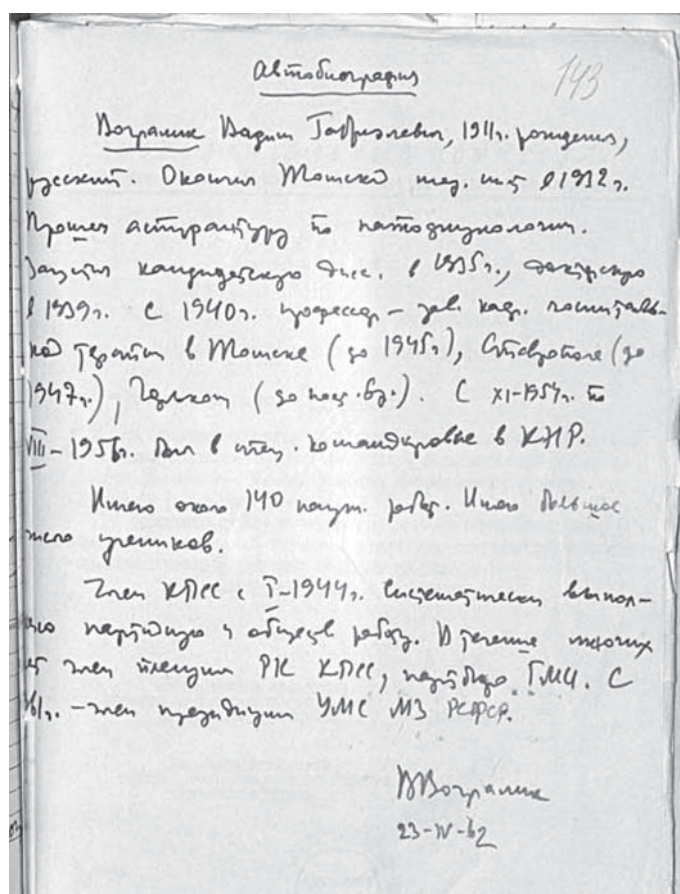 Автобиография
143
Вогралик Вадим Гавриилович, 1911г. рождения,
русский. Окончил Томский мед. инст. в 1932г.
Прошел аспирантуру по патофизиологии.
Защитил кандидатскую дисс. в 1935г., докторскую
в 1939г. С 1940г. профессор – зав. каф. госпиталь-
ной терапии в Томске (до 1945г), Ставрополе (до
1947г.), Горьком (до наст. вр.). С XI-1954г. по
VIII – 1956г. был в спец. командировке в КНР.
Имею около 140 научн. работ. Имею большое
число учеников.
Член КПСС с I-1944г. Систематически выпол-
няю партийную и обществ работу. В течение многих
лет член пленума РК КПСС, партбюро ГМИ. С
61г. – член президиума УМС МЗ РСФСР.
ВВогралик
23-IV-62